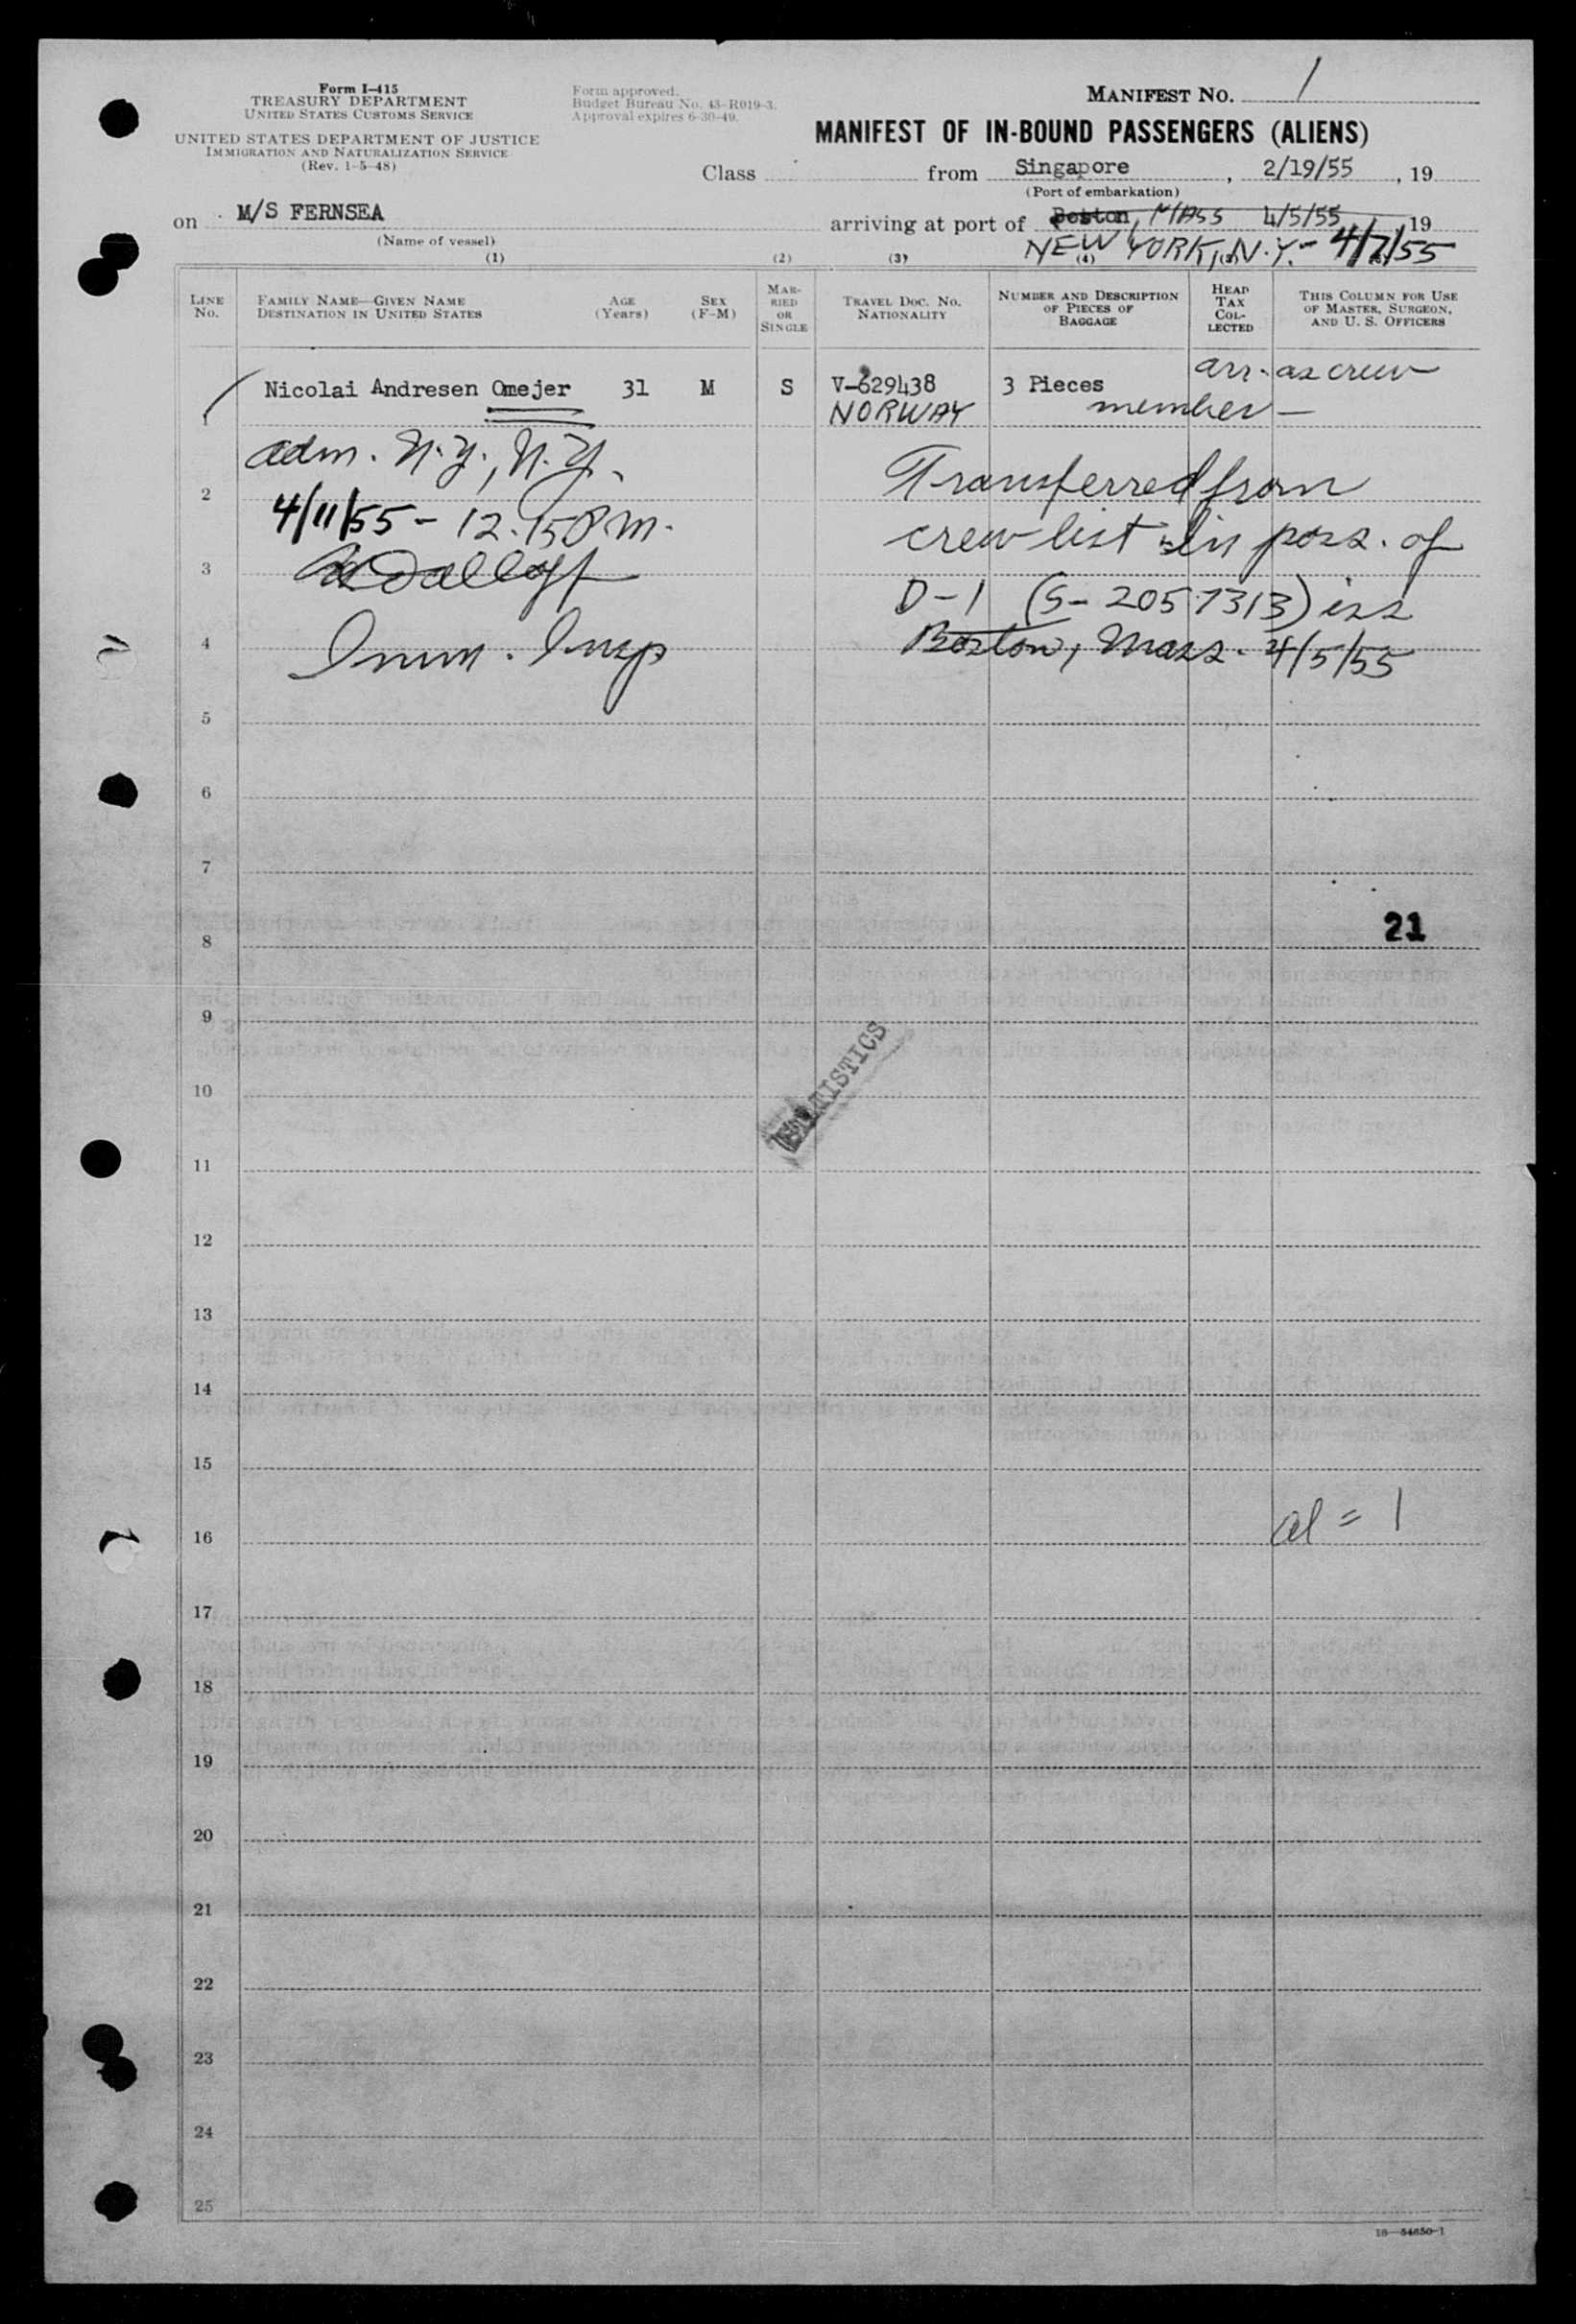 Form I-415
TREASURY DEPARTMENT
UNITED STATES CUSTOMS SERVICE
UNITED STATES DEPARTMENT OF JUSTICE
IMMIGRATION AND NATURALIZATION SERVICE
(Rev. 1-5-48)
Form approved.
Budget Bureau No. 43-R019-3.
Approval expires 6-30-49.
MANIFEST NO. 1
MANIFEST OF IN-BOUND PASSENGERS (ALIENS)
Class from Singapore , 2/19/55 , 19
(Port of embarkation)
on M/S FERNSEA arriving at port of Boston, MASS 4/5/55, 19
(Name of vessel)
NEW YORK, N.Y. - 4/7/55
(1) (2) (3) (4)
LINE No.
FAMILY NAME—GIVEN NAME
DESTINATION IN UNITED STATES
AGE (Years)
SEX (F-M)
MARRIED OR SINGLE
TRAVEL DOC. NO.
NATIONALITY
NUMBER AND DESCRIPTION OF PIECES OF BAGGAGE
HEAD TAX COLLECTED
THIS COLUMN FOR USE OF MASTER, SURGEON, AND U. S. OFFICERS
1 Nicolai Andresen Omejer 31 M S V-629438 3 Pieces arr. as crew
NORWAY member —
adm. N.Y., N.Y.
2 4/11/55 - 12.15 P.M.
Transferred from
crew list in poss. of
3
D-1 (S-2057313) iss
4 Imm. Insp
Boston, Mass. 4/5/55
5
6
7
8 21
9
STATISTICS
10
11
12
13
14
15
16 al = 1
17
18
19
20
21
22
23
24
25
16—54650-1